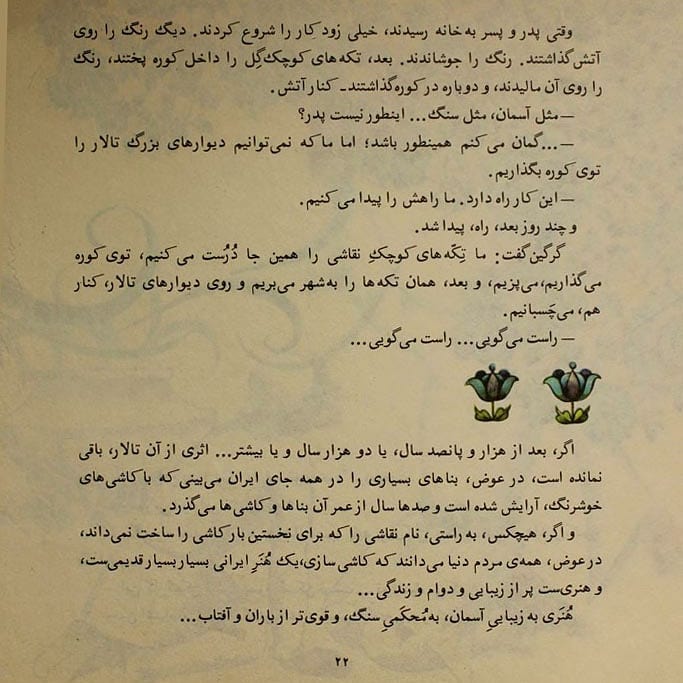 وقتی پدر و پسر به خانه رسیدند، خیلی زود کار را شروع کردند. دیگ رنگ را روی
آتش گذاشتند. رنگ را جوشاندند. بعد، تکه های کوچک گِل را داخل کوره پختند، رنگ
را روی آن مالیدند، و دوباره در کوره گذاشتند ـ کنار آتش.
— مثل آسمان، مثل سنگ... اینطور نیست پدر؟
— ...گمان می کنم همینطور باشد؛ اما ما که نمی‌توانیم دیوارهای بزرگ تالار را
توی کوره بگذاریم.
— این کار راه دارد. ما راهش را پیدا می کنیم.
و چند روز بعد، راه، پیدا شد.
گرگین گفت: ما تِکّه های کوچکِ نقاشی را همین جا دُرُست می‌کنیم، توی کوره
می‌گذاریم، می‌پزیم، و بعد، همان تکه ها را به شهر می‌بریم و روی دیوارهای تالار، کنار
هم، می‌چَسبانیم.
— راست می‌گویی... راست می‌گویی...
اگر، بعد از هزار و پانصد سال، یا دو هزار سال و یا بیشتر... اثری از آن تالار، باقی
نمانده است، در عوض، بناهای بسیاری را در همه جای ایران می‌بینی که با کاشی‌های
خوشرنگ، آرایش شده است و صدها سال از عمر آن بناها و کاشی‌ها می‌گذرد.
و اگر، هیچکس، به راستی، نام نقاشی را که برای نخستین بار کاشی را ساخت نمی‌داند،
در عوض، همه‌ی مردم دنیا می‌دانند که کاشی سازی، یک هُنَرِ ایرانی بسیار بسیار قدیمی‌ست،
و هنری‌ست پر از زیبایی و دوام و زندگی...
هُنَری به زیباییِ آسمان، به مُحکَمیِ سنگ، و قوی‌تر از باران و آفتاب...
۲۲